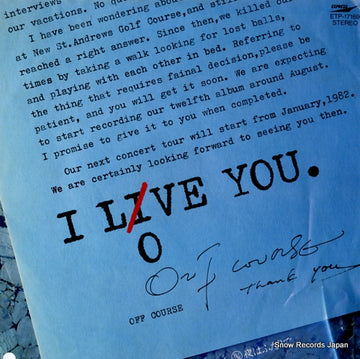 EXPRESS
ETP-17160
STEREO
interviews
our vacations. No
I have been wondering about
at New St.Andrews Golf Course, and still
reached a right answer. Since then, we killed our
times by taking a walk looking for lost balls,
and playing with each other in bed. Referring to
the thing that requires fainal decision, please be
patient, and you will get it soon. We are expecting
to start recording our twelfth album around August.
I promise to give it to you when completed.
Our next concert tour will start from January, 1982.
We are certainly looking forward to seeing you then.
I LIVE YOU.
O
OFF COURSE
THANK YOU
OFF COURSE
Snow Records Japan
http://snowrecords.jp/